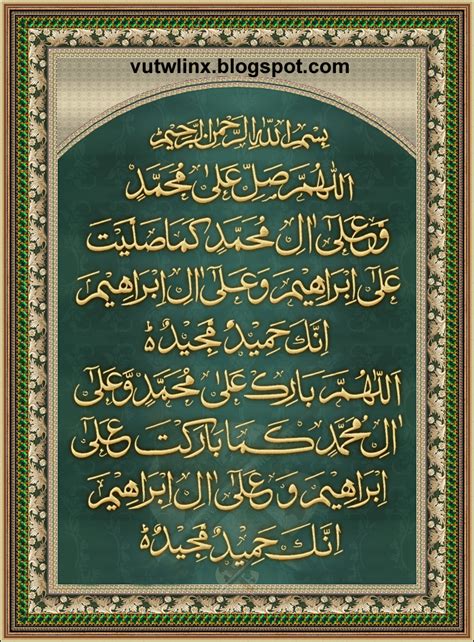 vutwlinx.blogspot.com
بسم الله الرحمن الرحيم
اَللّٰهُمَّ صَلِّ عَلٰى مُحَمَّدٍ
وَّعَلٰٓى اٰلِ مُحَمَّدٍ كَمَا صَلَّيْتَ
عَلٰٓى اِبْرَاهِيْمَ وَعَلٰٓى اٰلِ اِبْرَاهِيْمَ
اِنَّكَ حَمِيْدٌ مَّجِيْدٌ ؕ
اَللّٰهُمَّ بَارِكْ عَلٰى مُحَمَّدٍ وَّعَلٰٓى
اٰلِ مُحَمَّدٍ كَمَا بَارَكْتَ عَلٰٓى
اِبْرَاهِيْمَ وَعَلٰٓى اٰلِ اِبْرَاهِيْمَ
اِنَّكَ حَمِيْدٌ مَّجِيْدٌ ؕ